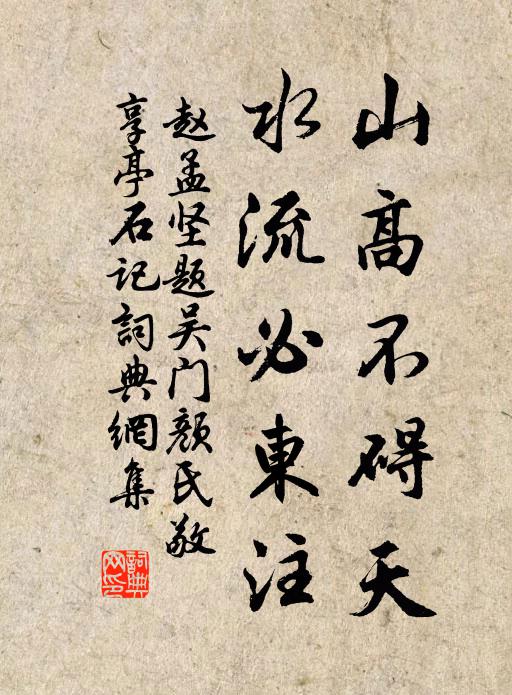 山高不碍天
水流必東注
赵孟坚题吴门颜氏敬
享亭石记詞典網集
詞典网印